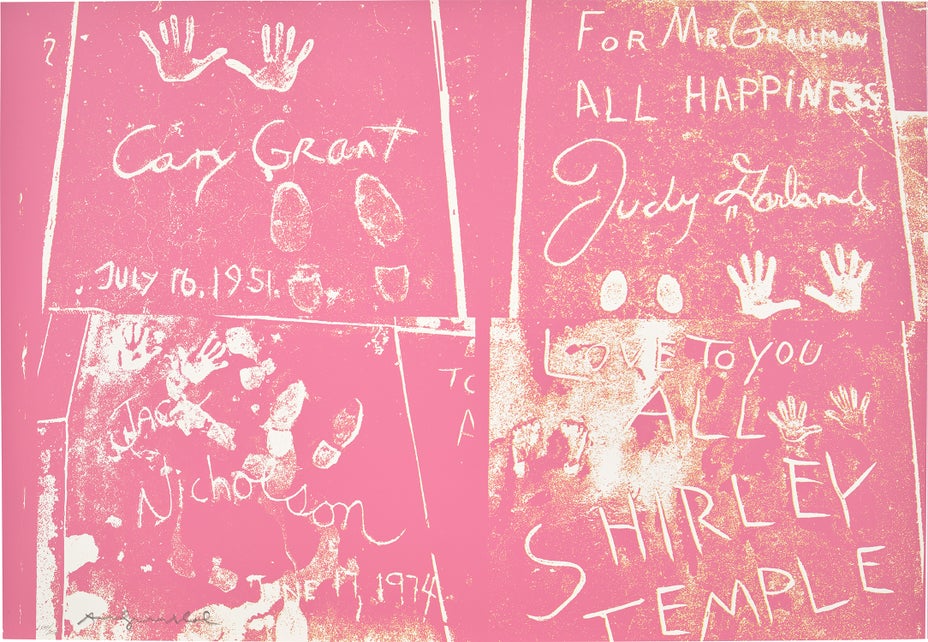 Cary Grant
JULY 16. 1951.
FOR MR. GRAUMAN
ALL HAPPINESS
Judy Garland
JACK
Nicholson
JUNE 17, 1974
LOVE TO YOU
ALL
SHIRLEY
TEMPLE
Andy Warhol